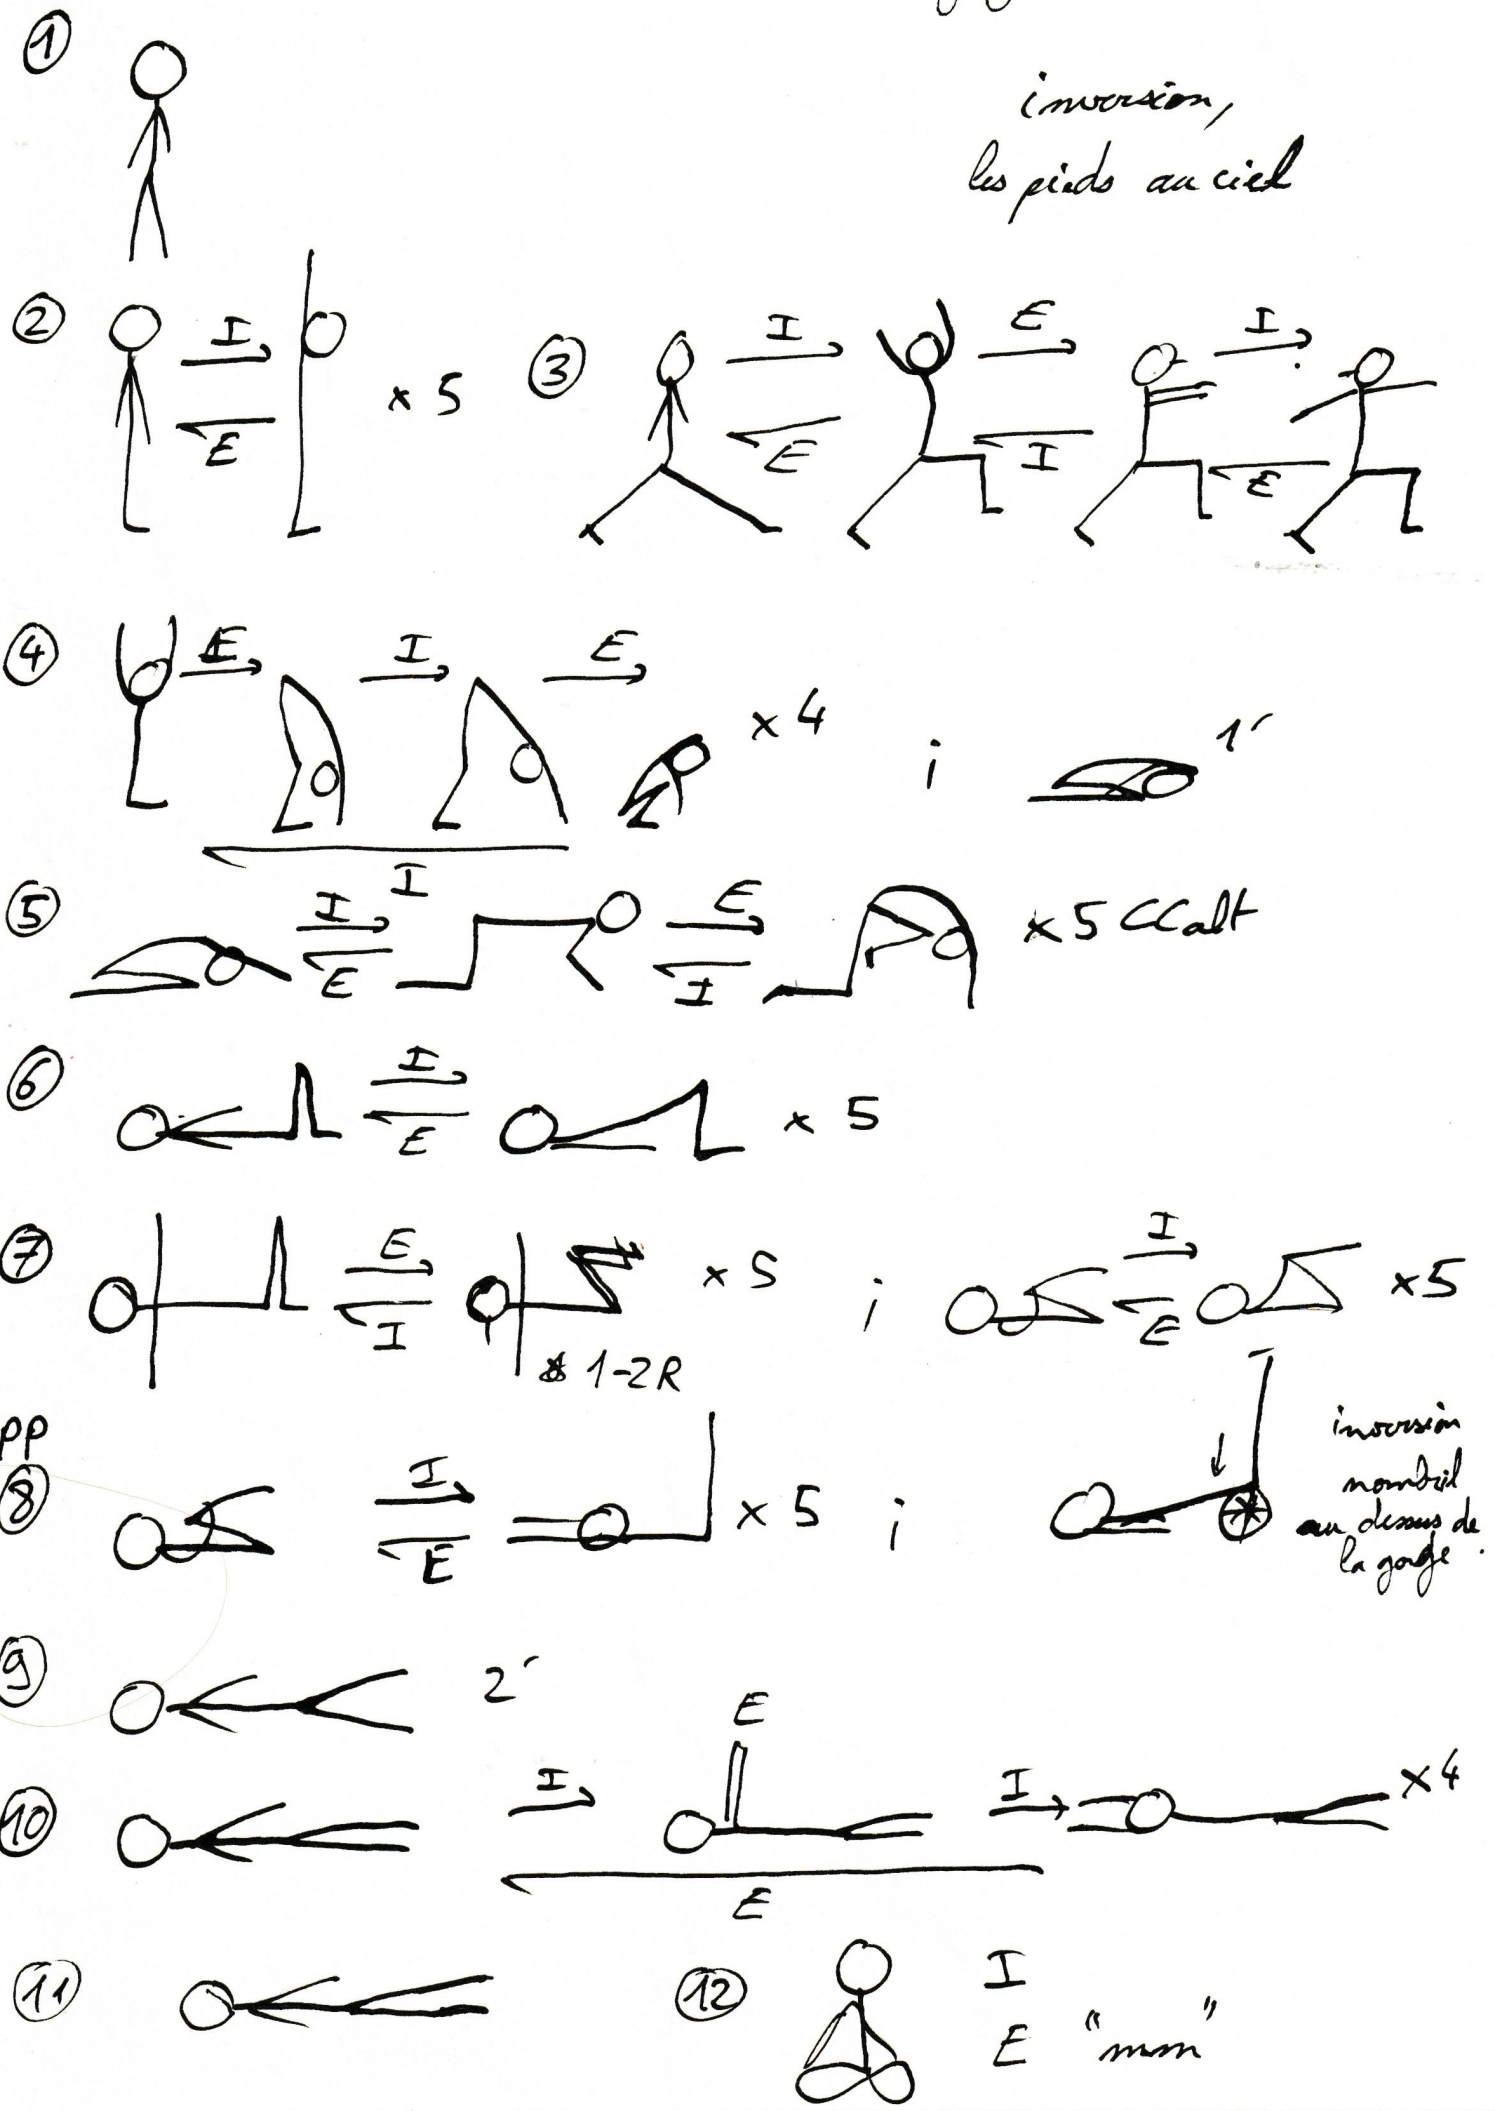 1
inversion,
les pieds au ciel
2 I E x 5
3 I E I
E I E
4 E I E x 4 i 1'
I
5 I E x 5 CCalt
E I
6 I x 5
E
7 E x 5 i I x5
I E
1-2R
PP
8 I x 5 i
E
inversion
nombril
au dessus de
la gorge.
9 2'
E
10 I I x4
E
11
12 I
E "mm"